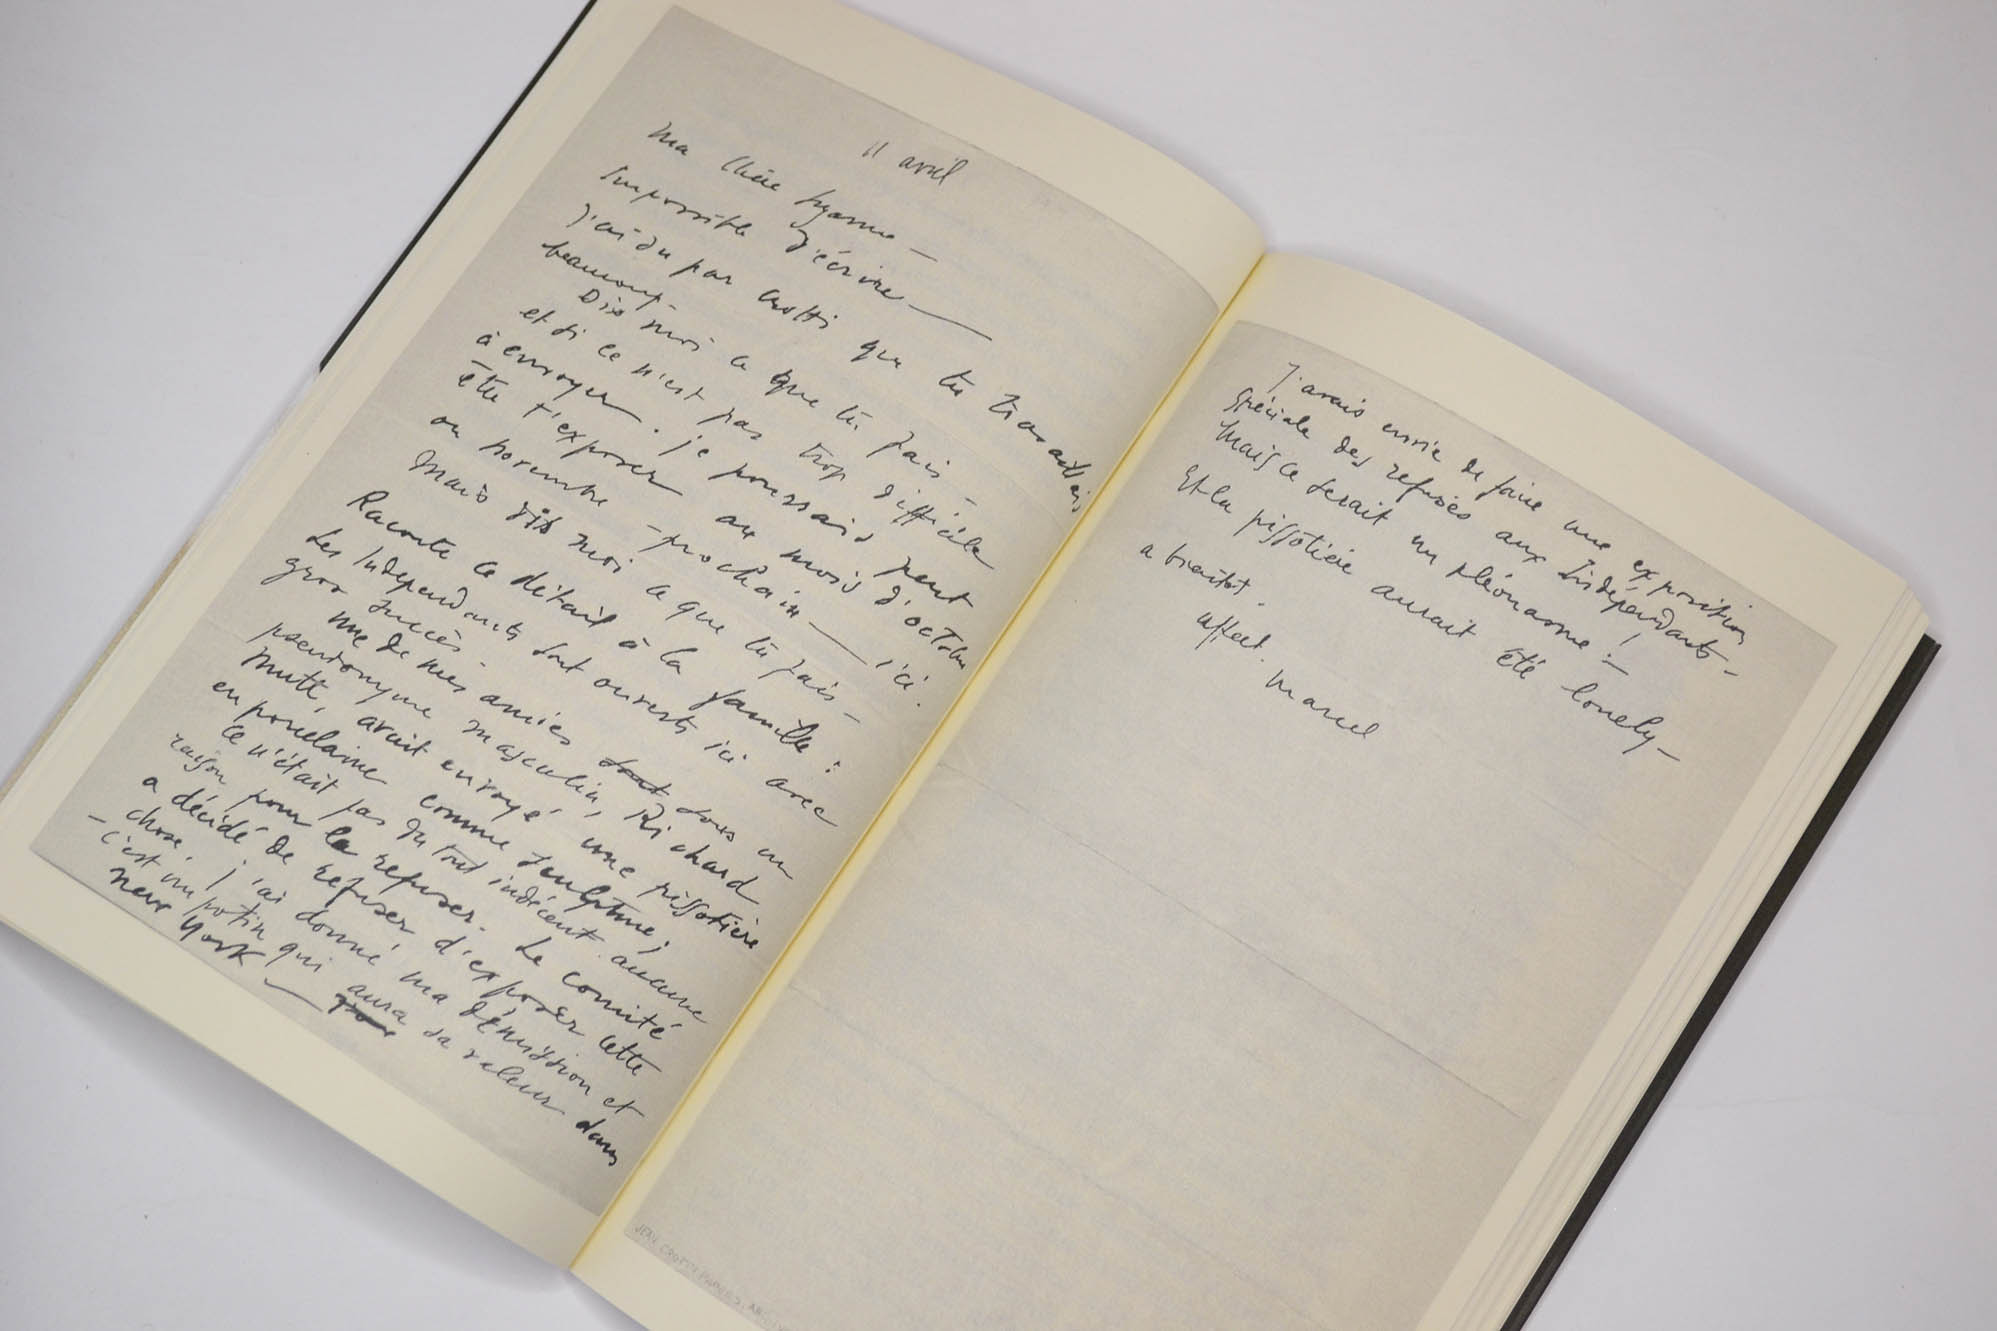 11 avril
Ma chère Suzanne —
Impossible d'écrire —
J'ai su par Crotti que tu travaillais
beaucoup.
Dis moi ce que tu fais —
et si ce n'est pas trop difficile
à envoyer. Je pourrais peut
être t'exposer au mois d'octobre
ou novembre — prochain — ici.
Mais dis moi ce que tu fais —
Raconte ce détail à la famille :
Les Indépendants sont ouverts ici avec
gros succès.
Une de mes amies sous un
pseudonyme masculin, Richard
Mutt, avait envoyé une pissotière
en porcelaine comme sculpture;
ce n'était pas du tout indécent aucune
raison pour la refuser. Le comité
a décidé de refuser d'exposer cette
chose. J'ai donné ma démission et
— c'est un potin qui aura sa valeur dans
New York —
J'avais envie de faire une exposition
spéciale des refusés aux Indépendants —
Mais ce serait un pléonasme !
Et la pissotière aurait été lonely —
a bientôt.
affect.
Marcel
JEAN CROTTI PAPERS,